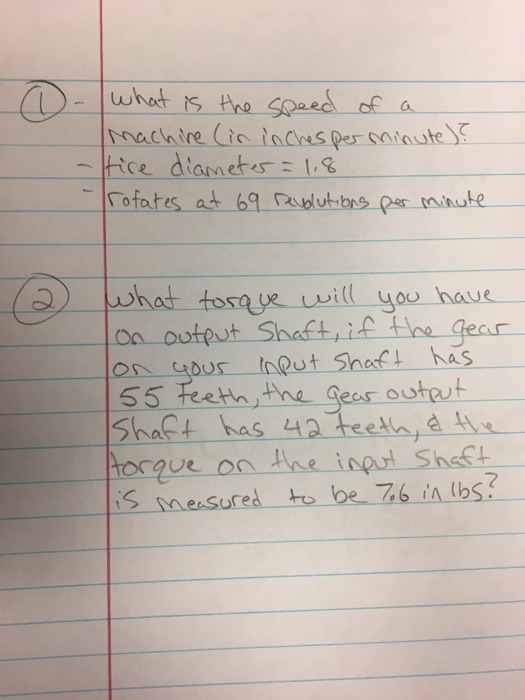 ① - What is the speed of a
machine (in inches per minute)?
- tire diameter = 1.8
- rotates at 69 revolutions per minute
② What torque will you have
on output shaft, if the gear
on your input shaft has
55 teeth, the gear output
shaft has 42 teeth, & the
torque on the input shaft
is measured to be 7.6 in lbs?